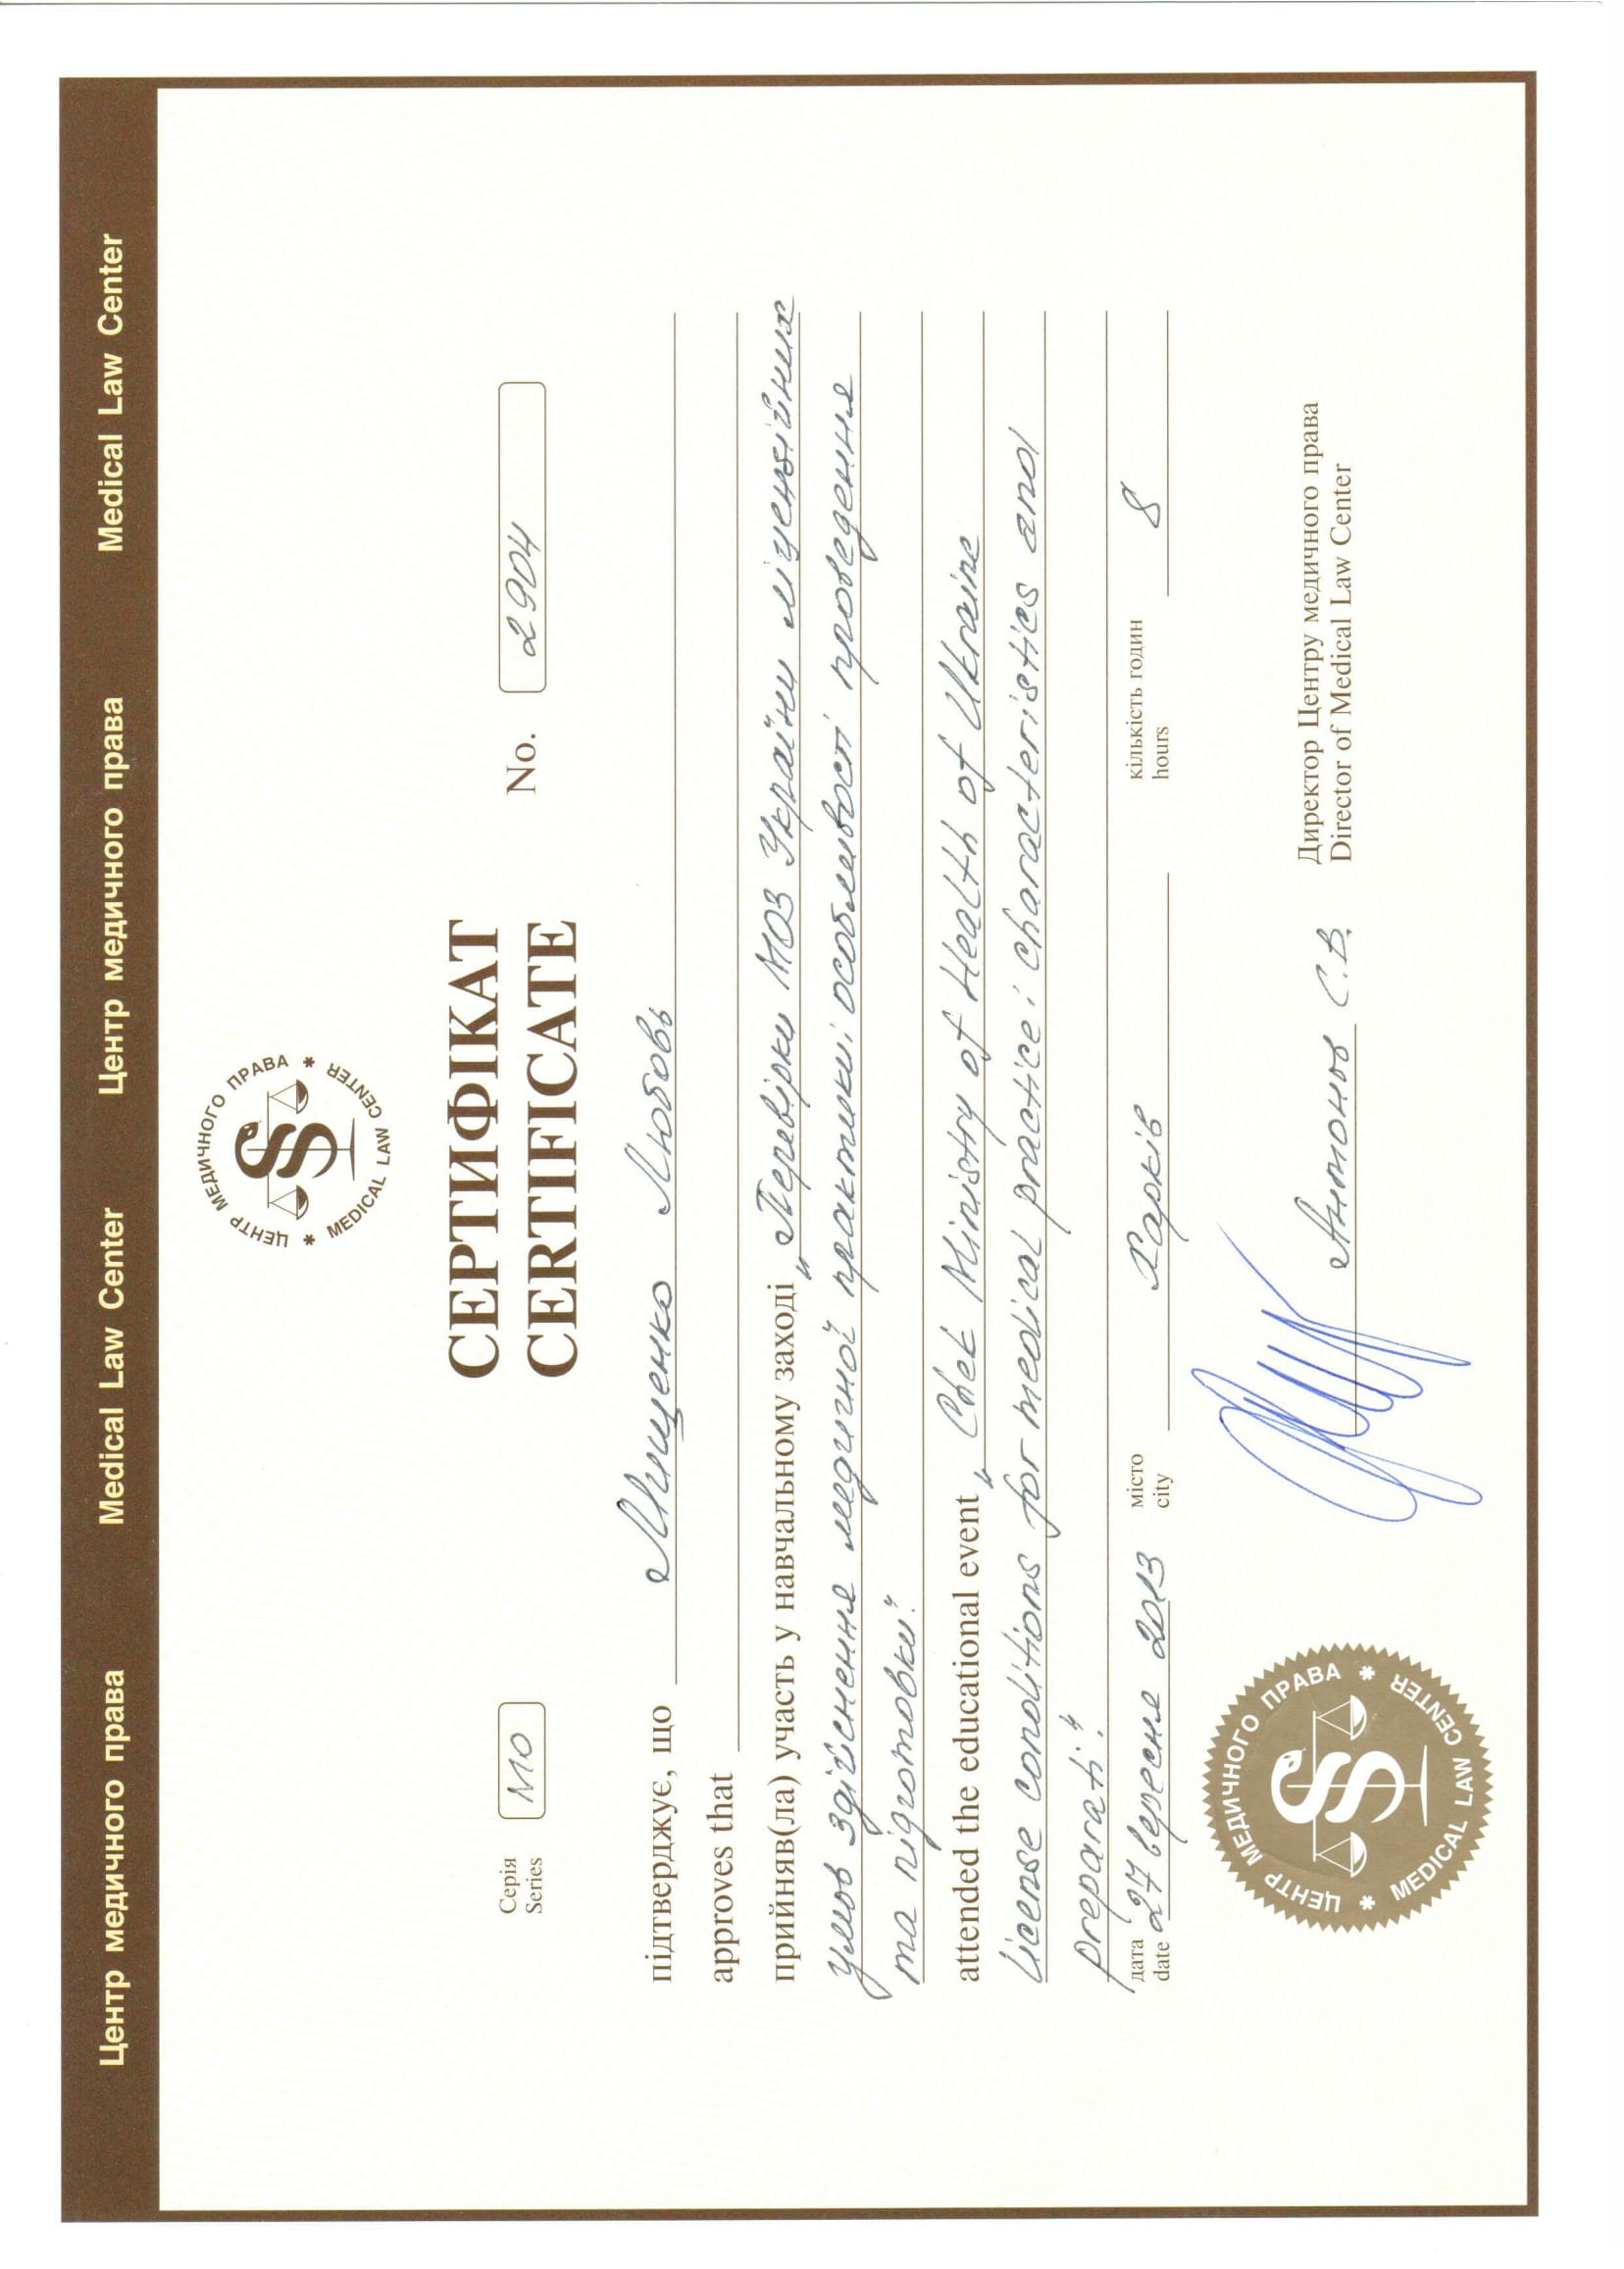 Центр медичного права Medical Law Center Центр медичного права Medical Law Center
ЦЕНТР МЕДИЧНОГО ПРАВА * MEDICAL LAW CENTER *
СЕРТИФІКАТ
CERTIFICATE
Серія
Series
МО
No. 2904
підтверджує, що Мищенко Любовь
approves that
прийняв(ла) участь у навчальному заході „Перевірки МОЗ України ліцензійних
умов здійснення медичної практики: особливості проведення
та підготовки“.
attended the educational event „Chek Ministry of Health of Ukraine
license conditions for medical practice: characteristics and
preparati“.
дата
date 27 вересня 2013
місто
city Харків
кількість годин
hours 8
Антонов С.В.
Директор Центру медичного права
Director of Medical Law Center
ЦЕНТР МЕДИЧНОГО ПРАВА * MEDICAL LAW CENTER *